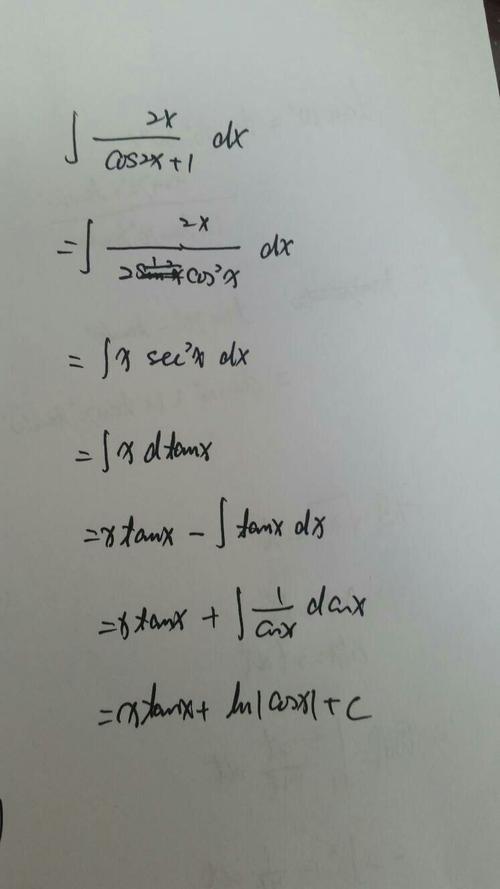 ∫ 2x / (cos2x+1) dx
= ∫ 2x / (2cos²x) dx
= ∫ x sec²x dx
= ∫ x dtanx
= x tanx − ∫ tanx dx
= x tanx + ∫ 1/cosx dcosx
= x tanx + ln|cosx| + C